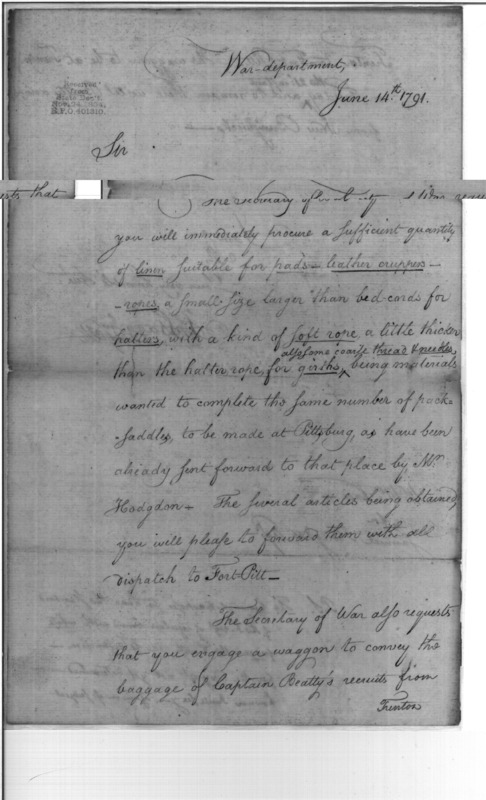 War-department,
June 14th. 1791.
Received
from
Sir
that
The Secretary of
you will immediately procure a sufficient quantity
of linen suitable for pads - leather cruppers -
- ropes, a small size larger than bed-cords for
halters, with a kind of soft rope, a little thicker
also some coarse thread & needles,
than the halter rope, for girths, being materials
wanted to complete the same number of pack-
saddles, to be made at Pittsburg, as have been
already sent forward to that place by Mr.
Hodgdon - The several articles being obtained,
you will please to forward them with all
dispatch to Fort-Pitt -
The Secretary of War also requests
that you engage a waggon to convey the
baggage of Captain Beatty's recruits from
Trenton